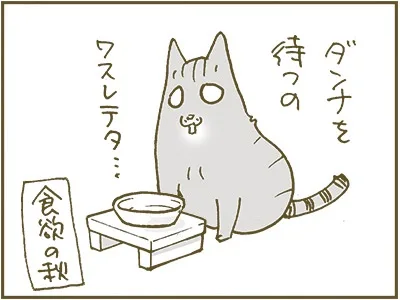 ダンナを
待つの
ワスレテタ…
食欲の秋